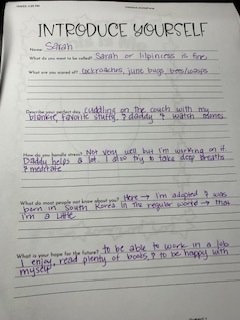 INTRODUCE YOURSELF
Name: Sarah
What do you want to be called? Sarah or lilprincess is fine
What are you scared of? Cockroaches, june bugs, bees/wasps
Describe your perfect day: cuddling on the couch with my
blankie, favorite stuffy, & daddy & watch
How do you handle stress? Not very well but I'm working on it.
Daddy helps a lot. I also try to take deep breaths
& meditate
What do most people not know about you? Here → I'm adopted & was
born in South Korea In the regular world → that
I'm a Little
What is your hope for the future? to be able to work in a job
I enjoy, read plenty of books, & to be happy with
myself